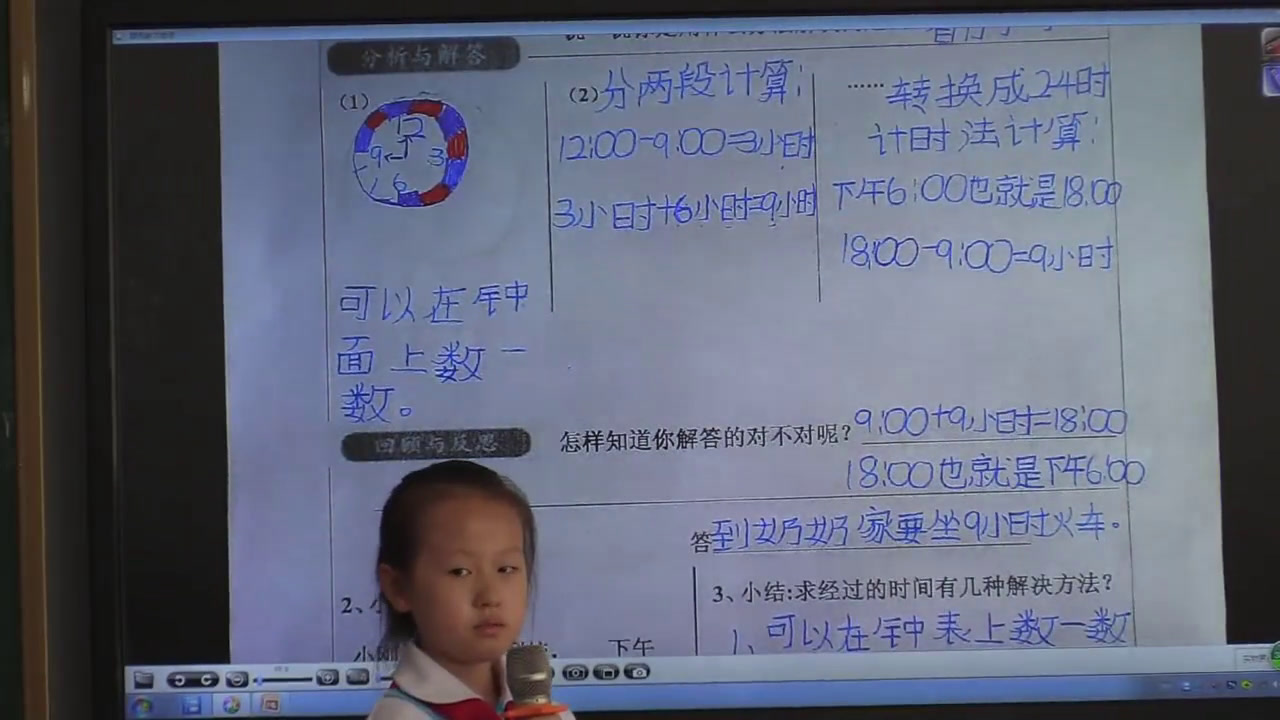 分析与解答
(1)
12
9
3
6
可以在钟
面上数一
数。
(2)分两段计算:
12:00-9:00=3小时
3小时+6小时=9小时
……转换成24时
计时法计算:
下午6:00也就是18:00
18:00-9:00=9小时
回顾与反思
怎样知道你解答的对不对呢?9:00+9小时=18:00
18:00也就是下午6:00
答到奶奶家要坐9小时火车。
3、小结:求经过的时间有几种解决方法?
1、可以在钟表上数一数
2、
下午